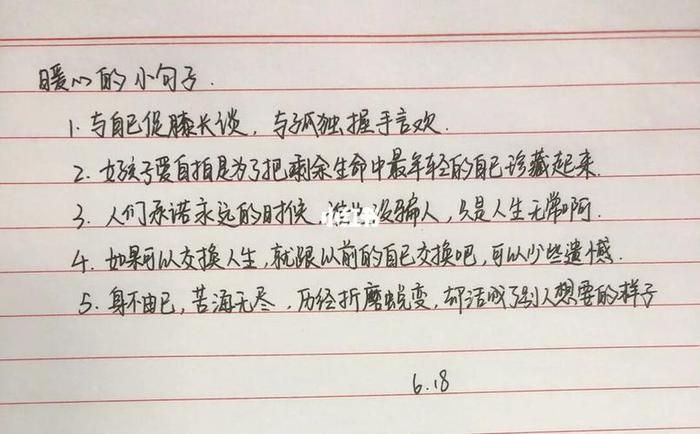 暖心的小句子.
1. 与自己促膝长谈，与孤独握手言欢.
2. 女孩子爱自拍是为了把剩余生命中最年轻的自己珍藏起来.
3. 人们承诺永远的时候，没骗人，只是人生无常啊.
小红书
4. 如果可以交换人生，就跟以前的自己交换吧，可以少些遗憾.
5. 身不由己，苦海无尽，历经折磨蜕变，却活成了别人想要的样子
6.18